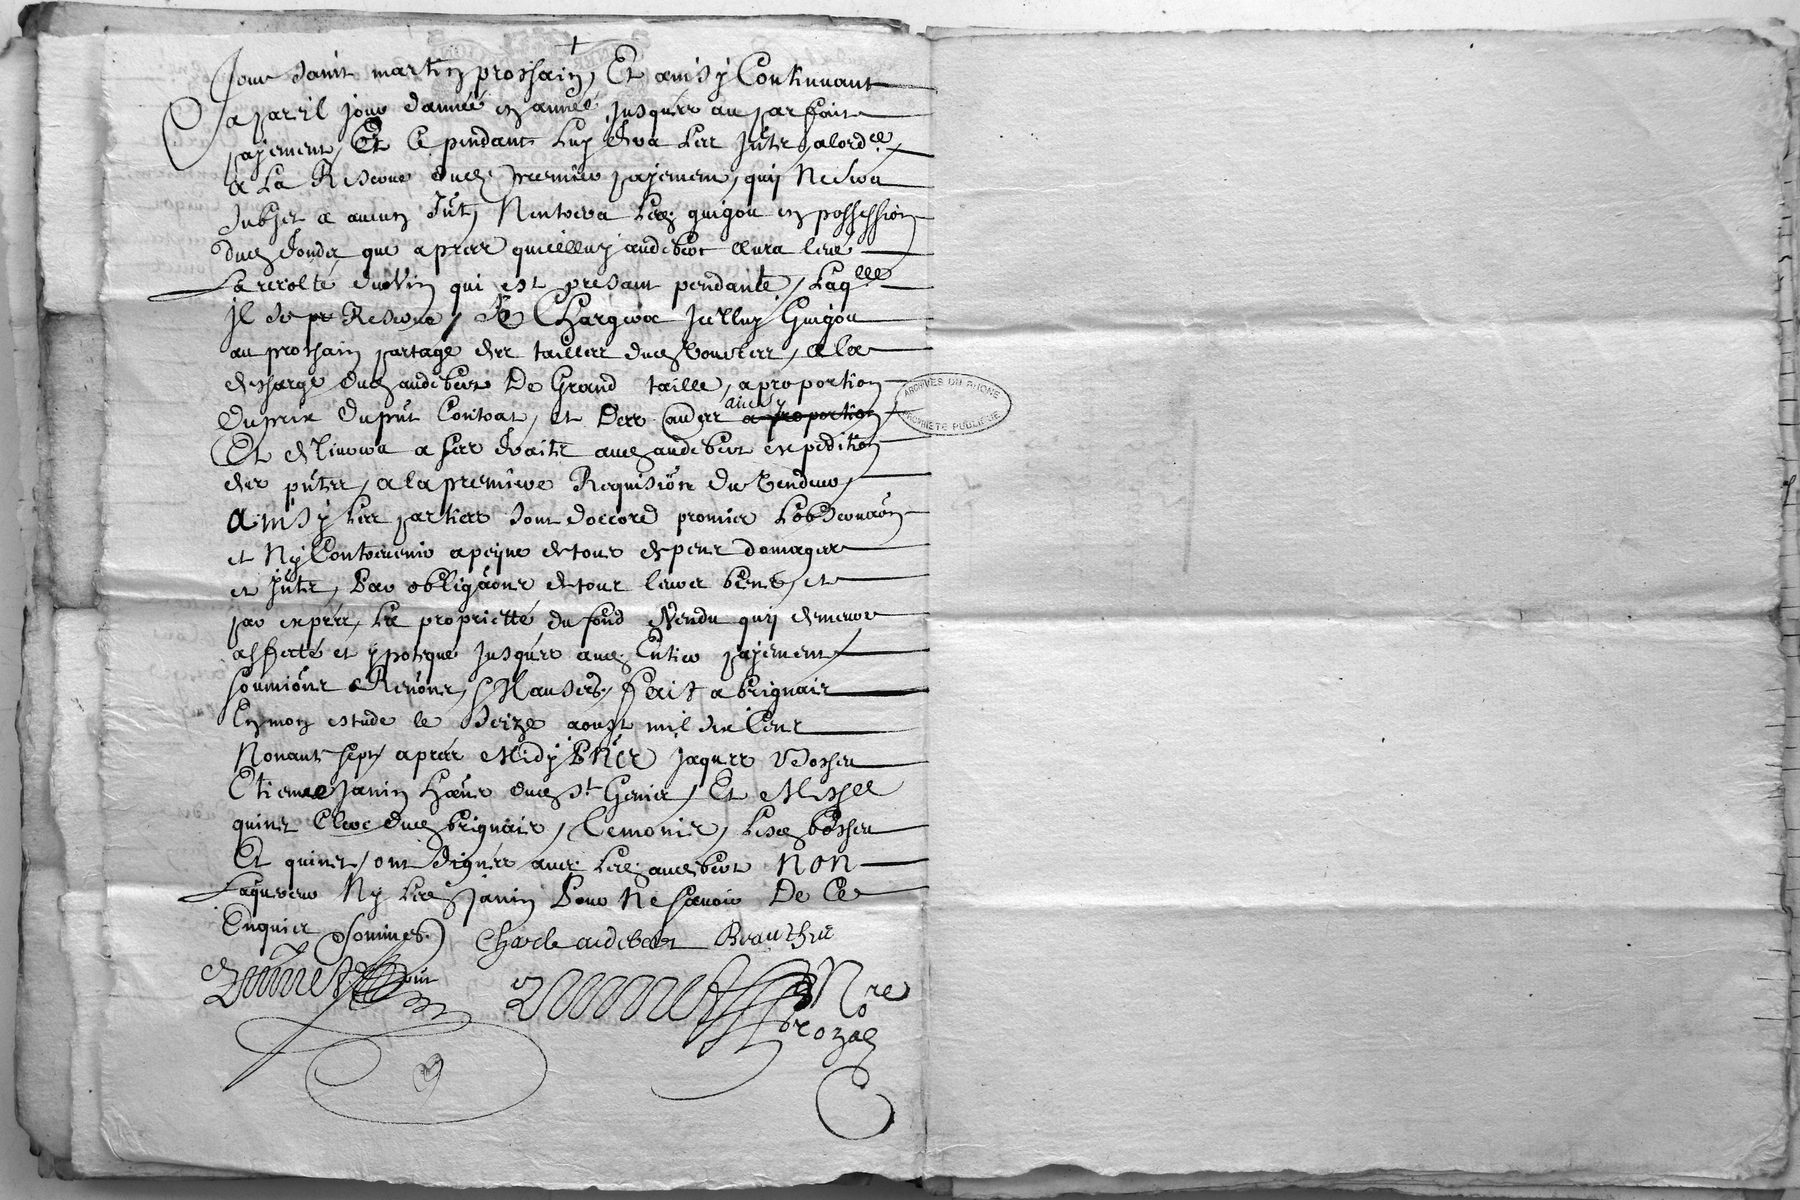 Jour saint martin prochain, Et ainsy Continuant
a pareil jour dannée en année, jusques au parfait
payement, Et Cependant luy sera les jntr. a lord.ce
a La Reserve dud. premier payement, quy Ne sera
subjet a aucun Jnt, Nentrera led. guigou en possession
dud. fondz que apres quicelluy audebert aura levé
La recolte du Vin qui est presant pendante, Laqlle
Jl se Reserve, Se Chargera jcelluy Guigou
au prochain partage des tailles dud. Vourles, a la
descharge dud. audebert De Grand taille, a proportion
du prix du pnt Contrat, et des Caages aussy a proportion
Et delivrera a ses fraitz aud. audebert expedition
des pntes, a la premiere Requisiõn du Vendeur,
ainsy les parties sont daccord promis Lobservaõn
et Ny Contrevenir a peyne de tous despens domages
et jntr, Par obligãons de tous leurs biens, et
par expres, La proprietté du fond Vendu quy demeure
affecté et ypoteque jusques aud. Entier payement
soumiõns Renõns, Clauses, fait a brignais
En mon estude le seize aoust mil six Cent
Nonante sept apres Midy Pñts jaques bosseu
Etienne Janin dud. St Genis, Et Michel
quinet Clerc dud. brignais, temoins, Lesd. bosseu
Et quinet, ont signés avec led. audebert NON
Laquereur Ny led. janin Pour Ne scavoir De Ce
Enquis sommés. Charle audebert
Nre
Royal
ARCHIVES DU RHONE
PROPRIETE PUBLIQUE